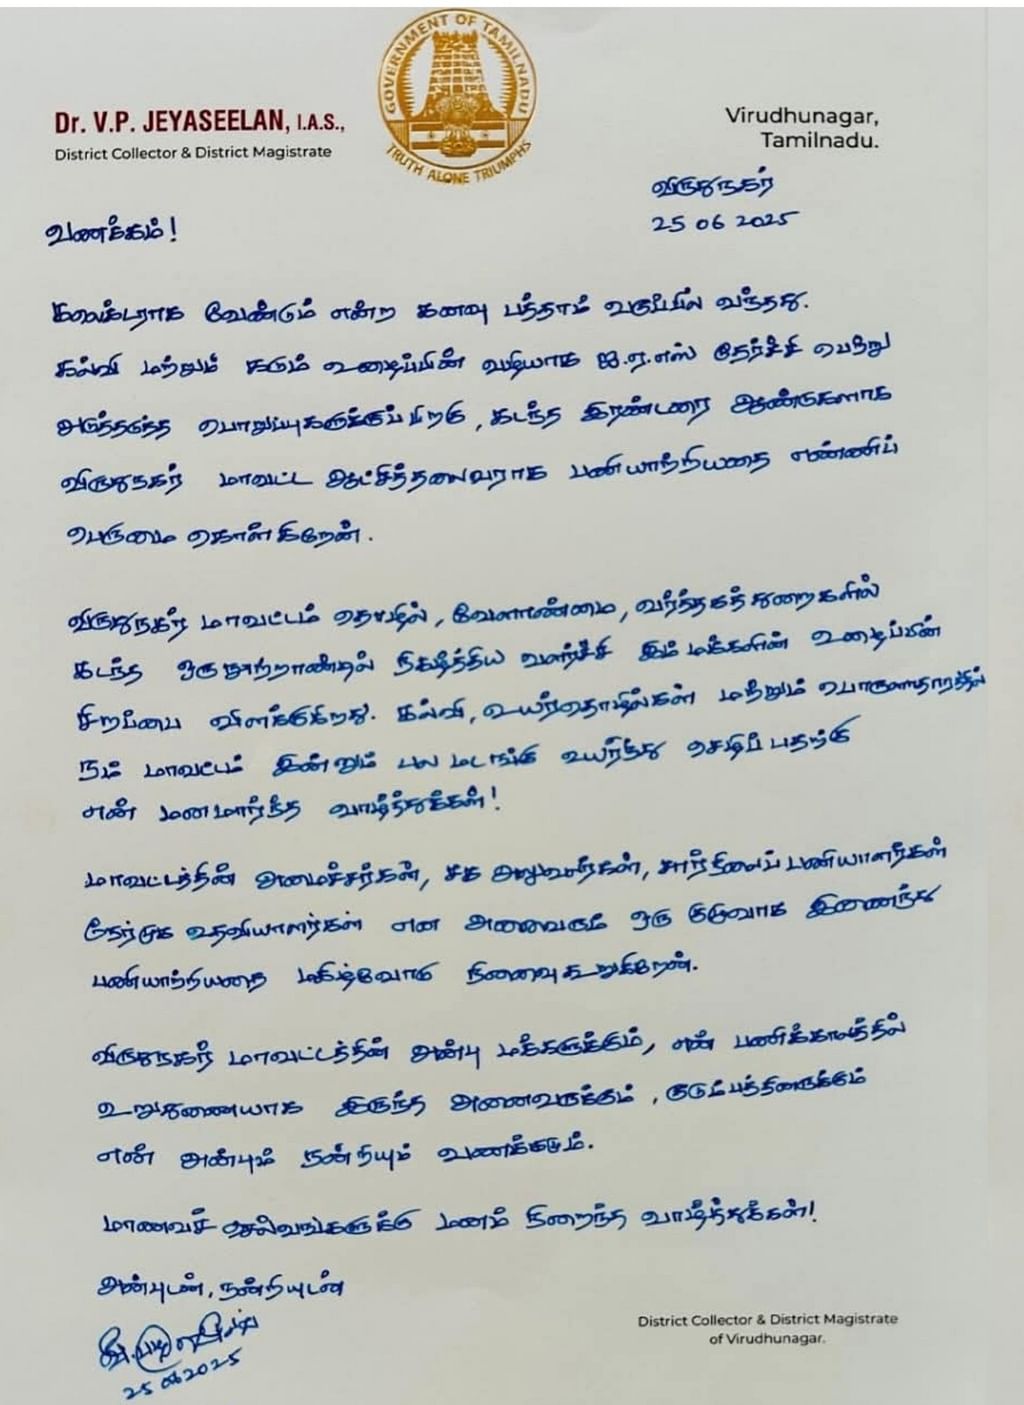 GOVERNMENT OF TAMILNADU
TRUTH ALONE TRIUMPHS
Dr. V.P. JEYASEELAN, I.A.S.,
District Collector & District Magistrate
Virudhunagar,
Tamilnadu.
விருதுநகர்
25 06 2025
வணக்கம்!
கலெக்டராக வேண்டும் என்ற கனவு பத்தாம் வகுப்பில் வந்தது.
கல்வி மற்றும் கடும் உழைப்பின் வழியாக ஐ.ஏ.எஸ் தேர்ச்சி பெற்று
அடுத்தடுத்த பொறுப்புகளுக்குப் பிறகு, கடந்த இரண்டரை ஆண்டுகளாக
விருதுநகர் மாவட்ட ஆட்சித்தலைவராக பணியாற்றியதை எண்ணிப்
பெருமை கொள்கிறேன்.
விருதுநகர் மாவட்டம் தொழில், வேளாண்மை, வர்த்தகத் துறைகளில்
கடந்த ஒரு நூற்றாண்டில் நிகழ்த்திய வளர்ச்சி இம் மக்களின் உழைப்பின்
சிறப்பை விளக்குகிறது. கல்வி, உயர்தொழில்கள் மற்றும் பொருளாதாரத்தில்
நம் மாவட்டம் இன்னும் பல மடங்கு உயர்ந்து செழிப்பதற்கு
என் மனமார்ந்த வாழ்த்துக்கள்!
மாவட்டத்தின் அமைச்சர்கள், சக அலுவலர்கள், சார்நிலைப் பணியாளர்கள்
நேர்முக உதவியாளர்கள் என அனைவரும் ஒரு குழுவாக இணைந்து
பணியாற்றியதை மகிழ்வோடு நினைவு கூறுகிறேன்.
விருதுநகர் மாவட்டத்தின் அன்பு மக்களுக்கும், என் பணிக்காலத்தில்
உறுதுணையாக இருந்த அனைவருக்கும், குடும்பத்தினருக்கும்
என் அன்பும் நன்றியும் வணக்கமும்.
மாணவச் செல்வங்களுக்கு மனம் நிறைந்த வாழ்த்துக்கள்!
அன்புடன், நன்றியுடன்
25 06 2025
District Collector & District Magistrate
of Virudhunagar.